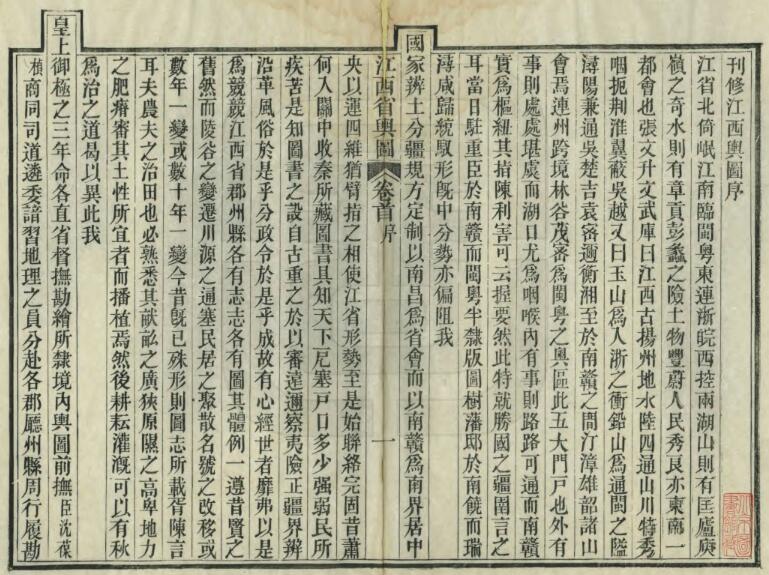 刊修江西輿圖序
江省北倚岷江南臨閩粵東連浙皖西控兩湖山則有匡廬庾
嶺之奇水則有章貢彭蠡之險土物豐蔚人民秀良亦東南一
都會也張文升文武庫曰江西古揚州地水陸四通山川特秀
咽扼荆淮翼蔽吳越又曰玉山爲入浙之衝鉛山爲通閩之隘
潯陽兼通吳楚吉袁審邇衡湘至於南贛之間汀漳雄韶諸山
會焉連州跨境林谷茂密爲閩粵之奧區此五大門戸也外有
事則處處堪虞而湖口尤爲咽喉內有事則路路可通而南贛
實爲樞紐其指陳利害可云握要然此特就勝國之疆圉言之
耳當日駐重臣於南贛而閩粵半隸版圖樹藩邸於南饒而瑞
潯咸歸統馭形旣中分勢亦偏阻我
國家辨土分疆規方定制以南昌爲省會而以南贛爲南界居中
江西省輿圖 卷首 序 一
央以運四維猶臂指之相使江省形勢至是始聯絡完固昔蕭
何入關中收秦所藏圖書具知天下戹塞戸口多少强弱民所
疾苦是知圖書之設自古重之於以審遠邇察夷險正疆界辨
沿革風俗於是乎分政令於是乎成故有心經世者靡弗以是
爲競競江西省郡州縣各有志志各有圖其體例一遵昔賢之
舊然而陵谷之變遷川源之通塞民居之聚散名號之改移或
數年一變或數十年一變今昔旣已殊形則圖志所載胥陳言
耳夫農夫之治田也必熟悉其畎畝之廣狹原隰之高卑地力
之肥瘠審其土性所宜者而播植焉然後耕耘灌漑可以有秋
爲治之道曷以異此我
皇上御極之三年命各直省督撫勘繪所隸境內輿圖前撫臣沈葆
楨商同司道遴委諳習地理之員分赴各郡廳州縣周行履勘